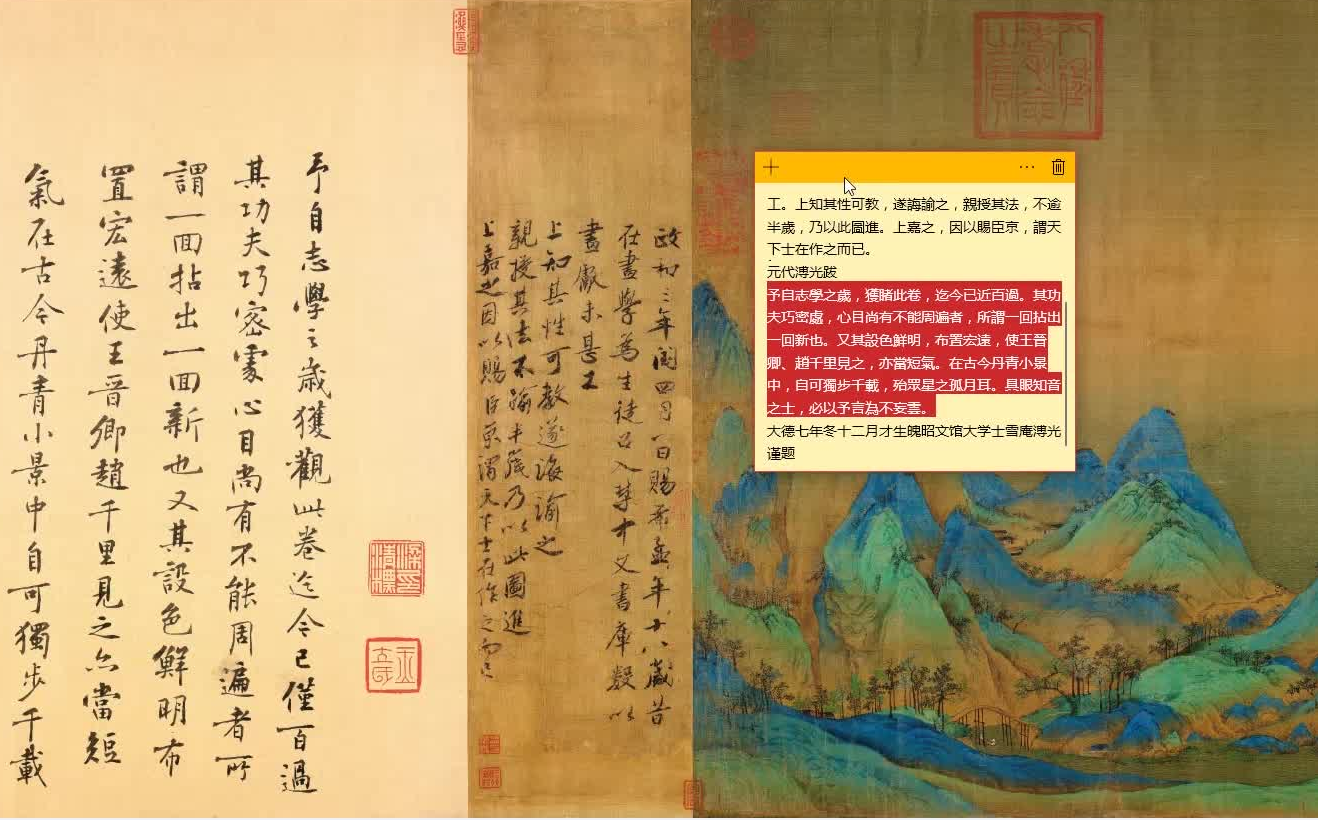 工。上知其性可教，遂誨諭之，親授其法，不逾
半歲，乃以此圖進。上嘉之，因以賜臣京，謂天
下士在作之而已。
元代溥光跋
予自志學之歲，獲睹此卷，迄今已近百過。其功
夫巧密處，心目尚有不能周遍者，所謂一回拈出
一回新也。又其設色鮮明，布置宏遠，使王晉
卿、趙千里見之，亦當短氣。在古今丹青小景
中，自可獨步千載，殆眾星之孤月耳。具眼知音
之士，必以予言為不妄雲。
大德七年冬十二月才生魄昭文馆大学士雪庵溥光
谨题
政和三年閏四月八日賜希孟年十八歲昔
在畫學為生徒召入禁中文書庫數以
畫獻未甚工
上知其性可教遂誨諭之
親授其法不踰半歲乃以此圖進
上嘉之因以賜臣京謂天下士在作之而已
予自志學之歲獲觀此卷迄今已僅百過
其功夫巧密處心目尚有不能周遍者所
謂一回拈出一回新也又其設色鮮明布
置宏遠使王晉卿趙千里見之亦當短
氣在古今丹青小景中自可獨步千載